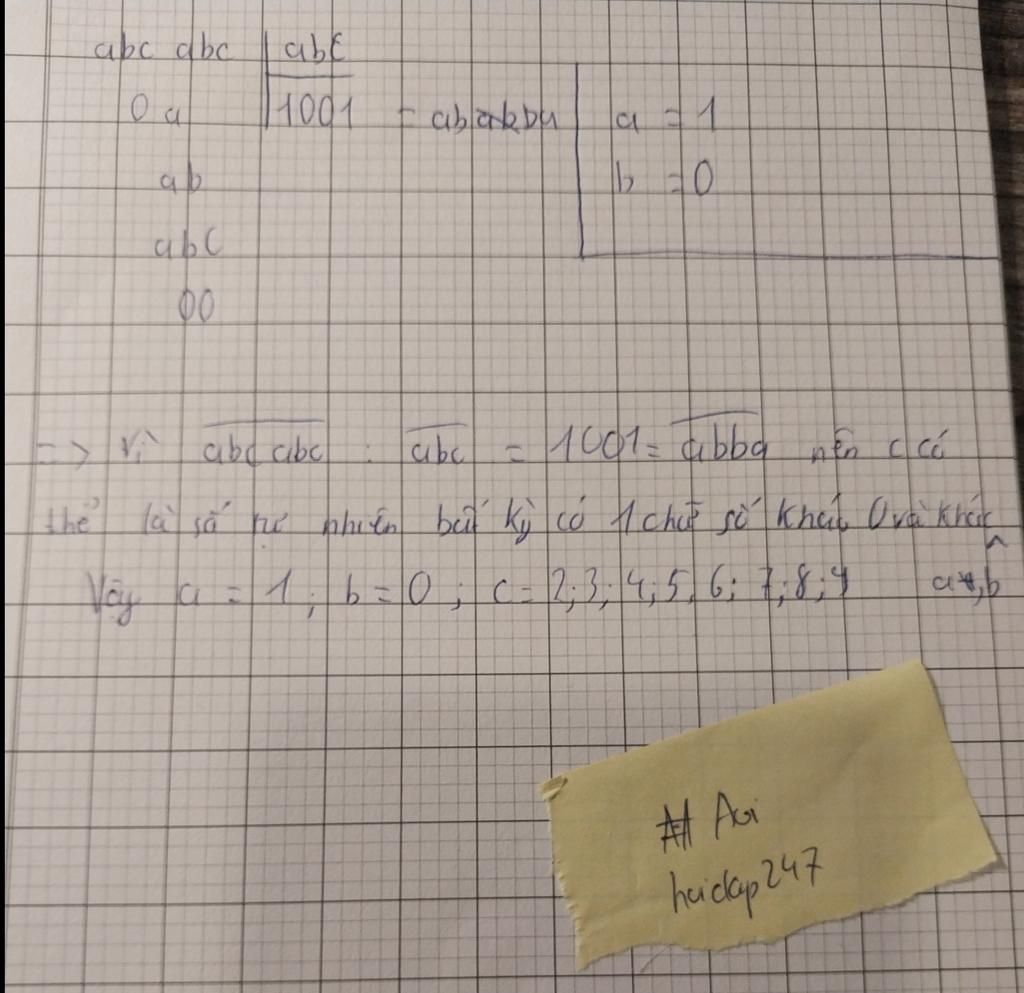 abc abc abc
0 a 1001 = a = 1
ab b = 0
abc
00
=> Vì abc abc : abc = 1001 = abba nên c có
thể là số tự nhiên bất kỳ có 1 chữ số khác 0 và khác
Vậy a = 1; b = 0; c = 2;3; 4;5; 6; 7;8;9 a,b
# Aoi
hoidap247